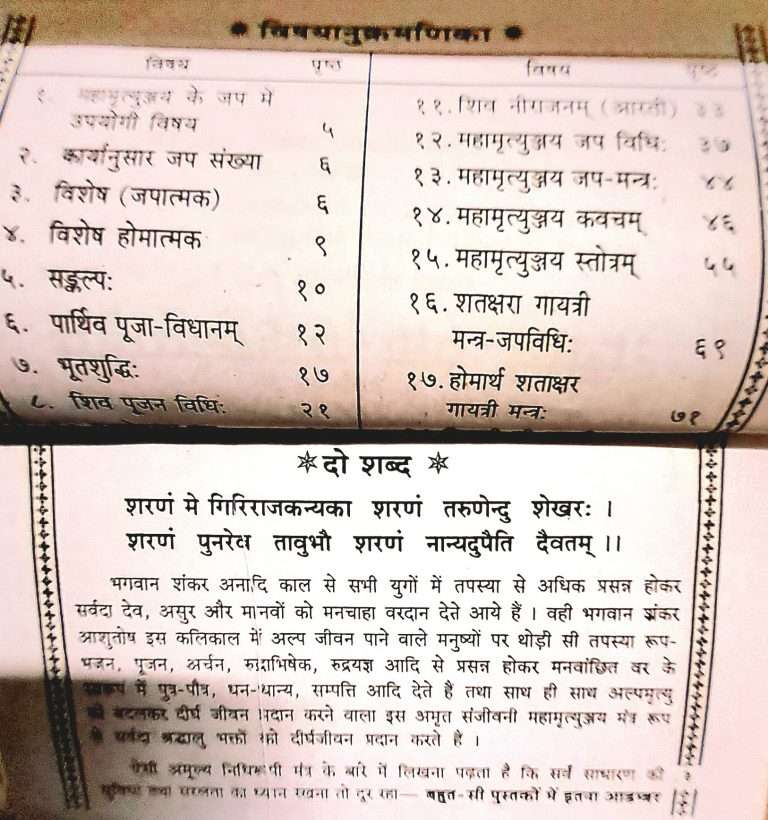 * विषयानुक्रमणिका *
विषय पृष्ठ
१. महामृत्युञ्जय के जप में
उपयोगी विषय ५
२. कार्यानुसार जप संख्या ६
३. विशेष (जपात्मक) ६
४. विशेष होमात्मक ९
५. सङ्कल्पः १०
६. पार्थिव पूजा-विधानम् १२
७. भूतशुद्धिः १७
८. शिव पूजन विधिः २१
विषय पृष्ठ
११. शिव नीराजनम् (आरती) ३३
१२. महामृत्युञ्जय जप विधिः ३७
१३. महामृत्युञ्जय जप-मन्त्रः ४४
१४. महामृत्युञ्जय कवचम् ४६
१५. महामृत्युञ्जय स्तोत्रम् ५५
१६. शतक्षरा गायत्री
मन्त्र-जपविधिः ६९
१७. होमार्थ शताक्षर
गायत्री मन्त्रः ७१
* दो शब्द *
शरणं मे गिरिराजकन्यका शरणं तरुणेन्दु शेखरः ।
शरणं पुनरेव तावुभौ शरणं नान्यदुपैति दैवतम् ।।
भगवान शंकर अनादि काल से सभी युगों में तपस्या से अधिक प्रसन्न होकर
सर्वदा देव, असुर और मानवों को मनचाहा वरदान देते आये हैं । वही भगवान शंकर
आशुतोष इस कलिकाल में अल्प जीवन पाने वाले मनुष्यों पर थोड़ी सी तपस्या रूप-
भजन, पूजन, अर्चन, रुद्राभिषेक, रुद्रयज्ञ आदि से प्रसन्न होकर मनवांछित वर के
स्वरूप में पुत्र-पौत्र, धन-धान्य, सम्पत्ति आदि देते हैं तथा साथ ही साथ अल्पमृत्यु
को बदलकर दीर्घ जीवन प्रदान करने वाला इस अमृत संजीवनी महामृत्युञ्जय मंत्र रूप
से सर्वदा श्रद्धालु भक्तों को दीर्घजीवन प्रदान करते हैं ।
ऐसी अमूल्य निधिरूपी मंत्र के बारे में लिखना पढ़ता है कि सर्व साधारण की
सुविधा तथा सरलता का ध्यान रखना तो दूर रहा— बहुत-सी पुस्तकों में इतना आडम्बर